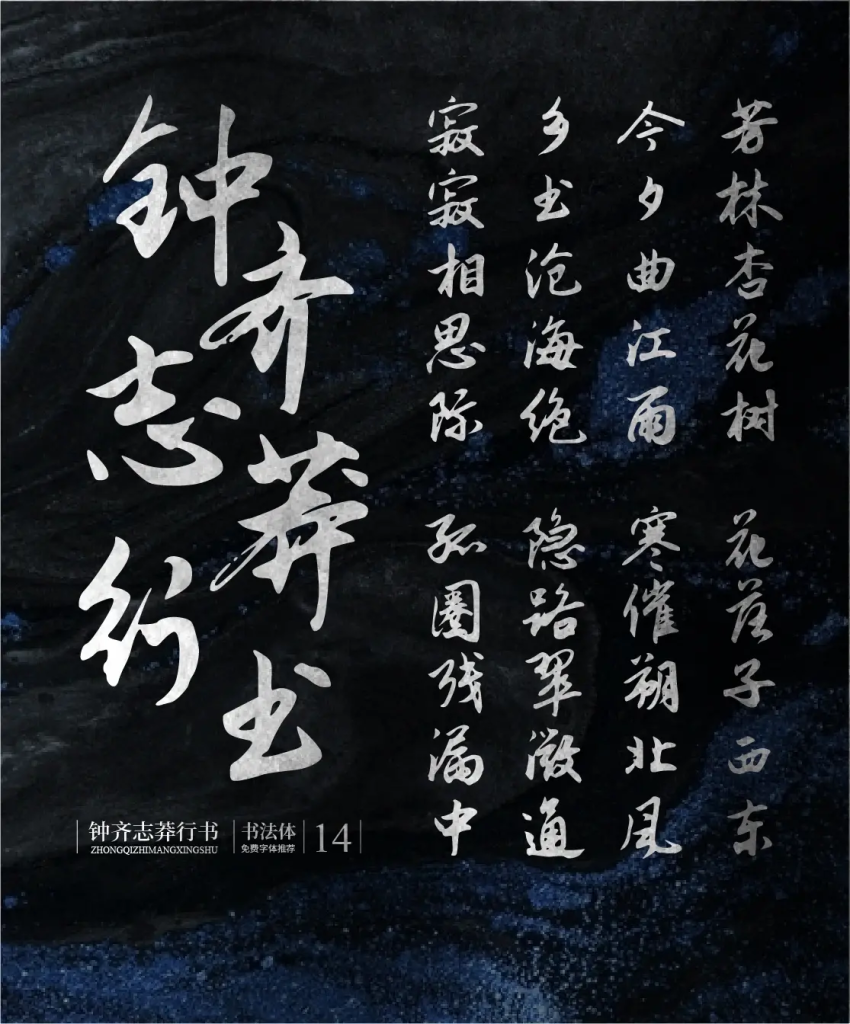 钟齐志莽行书
芳林杏花树 花落子西东
今夕曲江雨 寒催朔北风
乡书沧海绝 隐路翠微通
寂寂相思际 孤圈残漏中
钟齐志莽行书
ZHONGQIZHIMANGXINGSHU
书法体
免费字体推荐
14